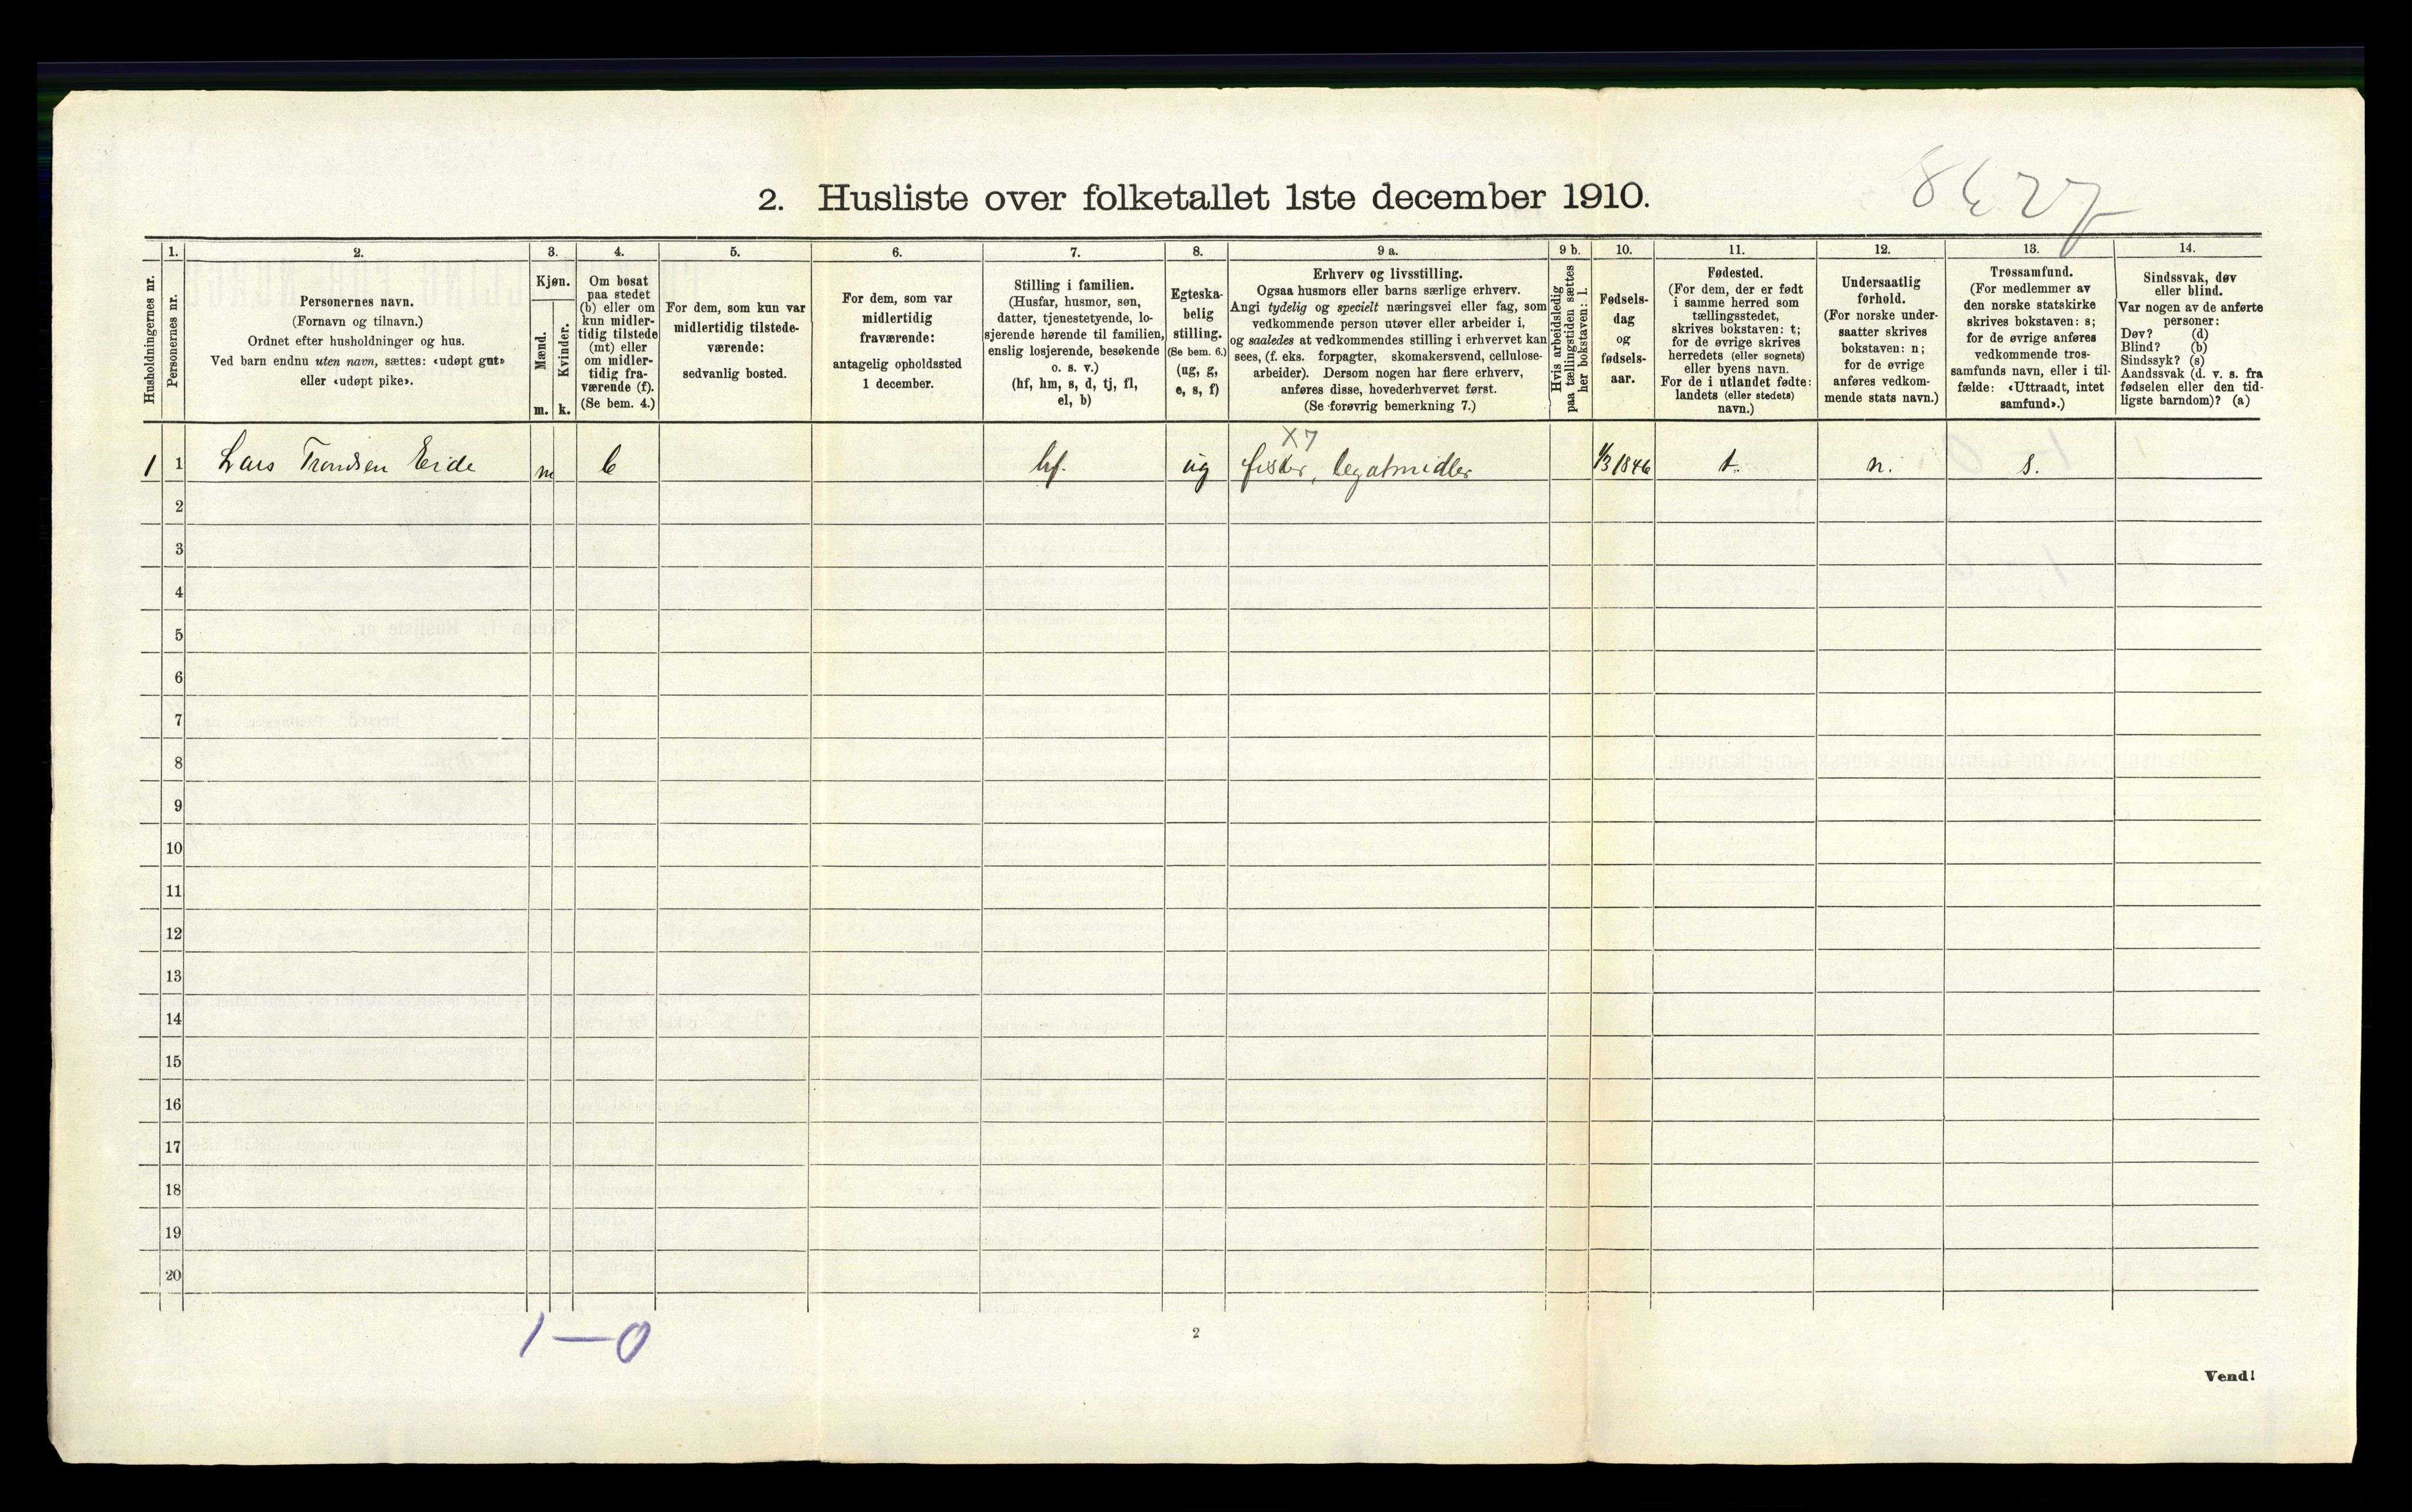 2. Husliste over folketallet 1ste december 1910.
Husholdningernes nr.
1.
Personernes nr.
2.
Personernes navn.
(Fornavn og tilnavn.)
Ordnet efter husholdninger og hus.
Ved barn endnu uten navn, sættes: «udøpt gut»
eller «udøpt pike».
3.
Kjøn.
Mænd.
Kvinder.
m. k.
4.
Om bosat
paa stedet
(b) eller om
kun midler-
tidig tilstede
(mt) eller
om midler-
tidig fra-
værende (f).
(Se bem. 4.)
5.
For dem, som kun var
midlertidig tilstede-
værende:
sedvanlig bosted.
6.
For dem, som var
midlertidig
fraværende:
antagelig opholdssted
1 december.
7.
Stilling i familien.
(Husfar, husmor, søn,
datter, tjenestetyende, lo-
sjerende hørende til familien,
enslig losjerende, besøkende
o. s. v.)
(hf, hm, s, d, tj, fl,
el, b)
8.
Egteska-
belig
stilling.
(Se bem. 6.)
(ug, g,
e, s, f)
9 a.
Erhverv og livsstilling.
Ogsaa husmors eller barns særlige erhverv.
Angi tydelig og specielt næringsvei eller fag, som
vedkommende person utøver eller arbeider i,
og saaledes at vedkommendes stilling i erhvervet kan
sees, (f. eks. forpagter, skomakersvend, cellulose-
arbeider). Dersom nogen har flere erhverv,
anføres disse, hovederhvervet først.
(Se forøvrig bemerkning 7.)
9 b.
Hvis arbeidsledig
paa tællingstiden sættes
her bokstaven: l.
10.
Fødsels-
dag
og
fødsels-
aar.
11.
Fødested.
(For dem, der er født
i samme herred som
tællingsstedet,
skrives bokstaven: t;
for de øvrige skrives
herredets (eller sognets)
eller byens navn.
For de i utlandet fødte:
landets (eller stedets)
navn.)
12.
Undersaatlig
forhold.
(For norske under-
saatter skrives
bokstaven: n;
for de øvrige
anføres vedkom-
mende stats navn.)
13.
Trossamfund.
(For medlemmer av
den norske statskirke
skrives bokstaven: s;
for de øvrige anføres
vedkommende tros-
samfunds navn, eller i til-
fælde: «Uttraadt, intet
samfund».)
14.
Sindssvak, døv
eller blind.
Var nogen av de anførte
personer:
Døv? (d)
Blind? (b)
Sindssyk? (s)
Aandssvak (d. v. s. fra
fødselen eller den tid-
ligste barndom)? (a)
X7
1 1 Lars Trondsen Eide m b hf. ug fisker, legatmidler 1/3 1846 t. n. s.
2
3
4
5
6
7
8
9
10
11
12
13
14
15
16
17
18
19
20
1-0
2
Vend!